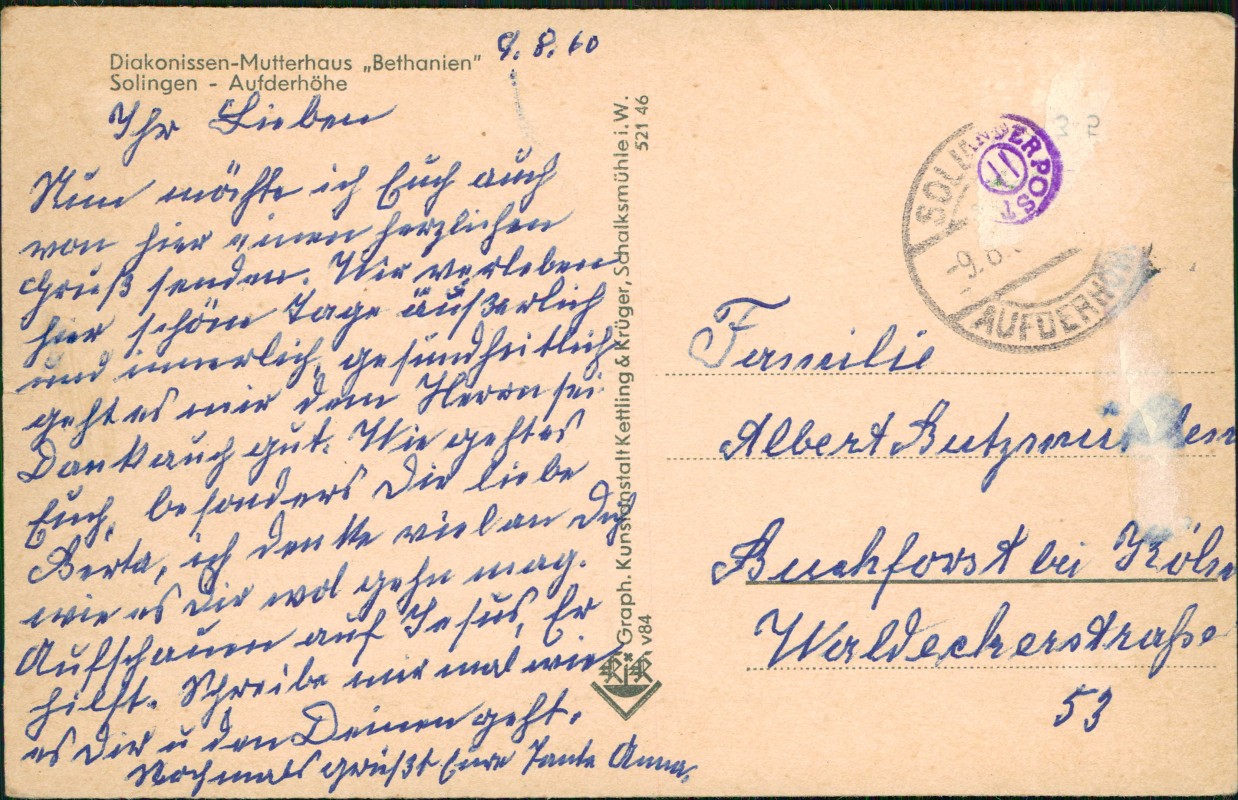 Diakonissen-Mutterhaus „Bethanien"
Solingen - Aufderhöhe
9. 8. 60
Ihr Lieben
Nun möchte ich Euch auch
von hier einen herzlichen
Gruß senden. Wir verleben
hier schöne Tage äußerlich
und innerlich, gesundheitlich
geht es mir dem Herrn sei
Dank auch gut. Wie geht es
Euch, besonders Dir liebe
Berta, ich denke viel an Dich
wie es Dir wol gehn mag.
Aufschauen auf Jesus, Er
hilft. Schreibe mir mal wie
es Dir u den Deinen geht.
Nochmals grüßt Eure Tante Anna.
Graph. Kunstanstalt Kettling & Krüger, Schalksmühle i. W.
521 46
v84
K&K
SOLIN
-9. 8.
AUFDERH
NDERPOST
11
Familie
Albert
Buchforst bei Köln
Waldeckerstraße
53